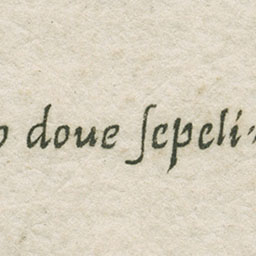 o doue ſepeli-